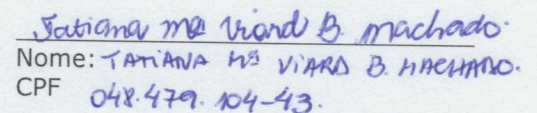 Tatiana Mª Viard B. Machado.
Nome: TATIANA Mª VIARD B. MACHADO.
CPF 048.479.104-43.